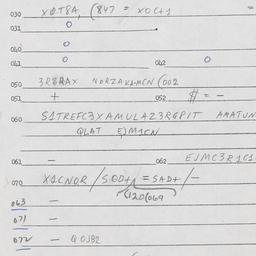 030 X0T8A, (847 = X0C+1
031 0
040 0
041 0 042 0
050 3R8RAX NORZAKLMCN (002
051 + 052 # = -
060 S1TREFC3XAMULAZ3R6PIT AMATUN
QLAT EJM1CN
061 - 062 EJMC3R1C1
070 X1CNOR /SODT1 = SADT/-
(120(069
063 -
071 -
072 - Q0J82